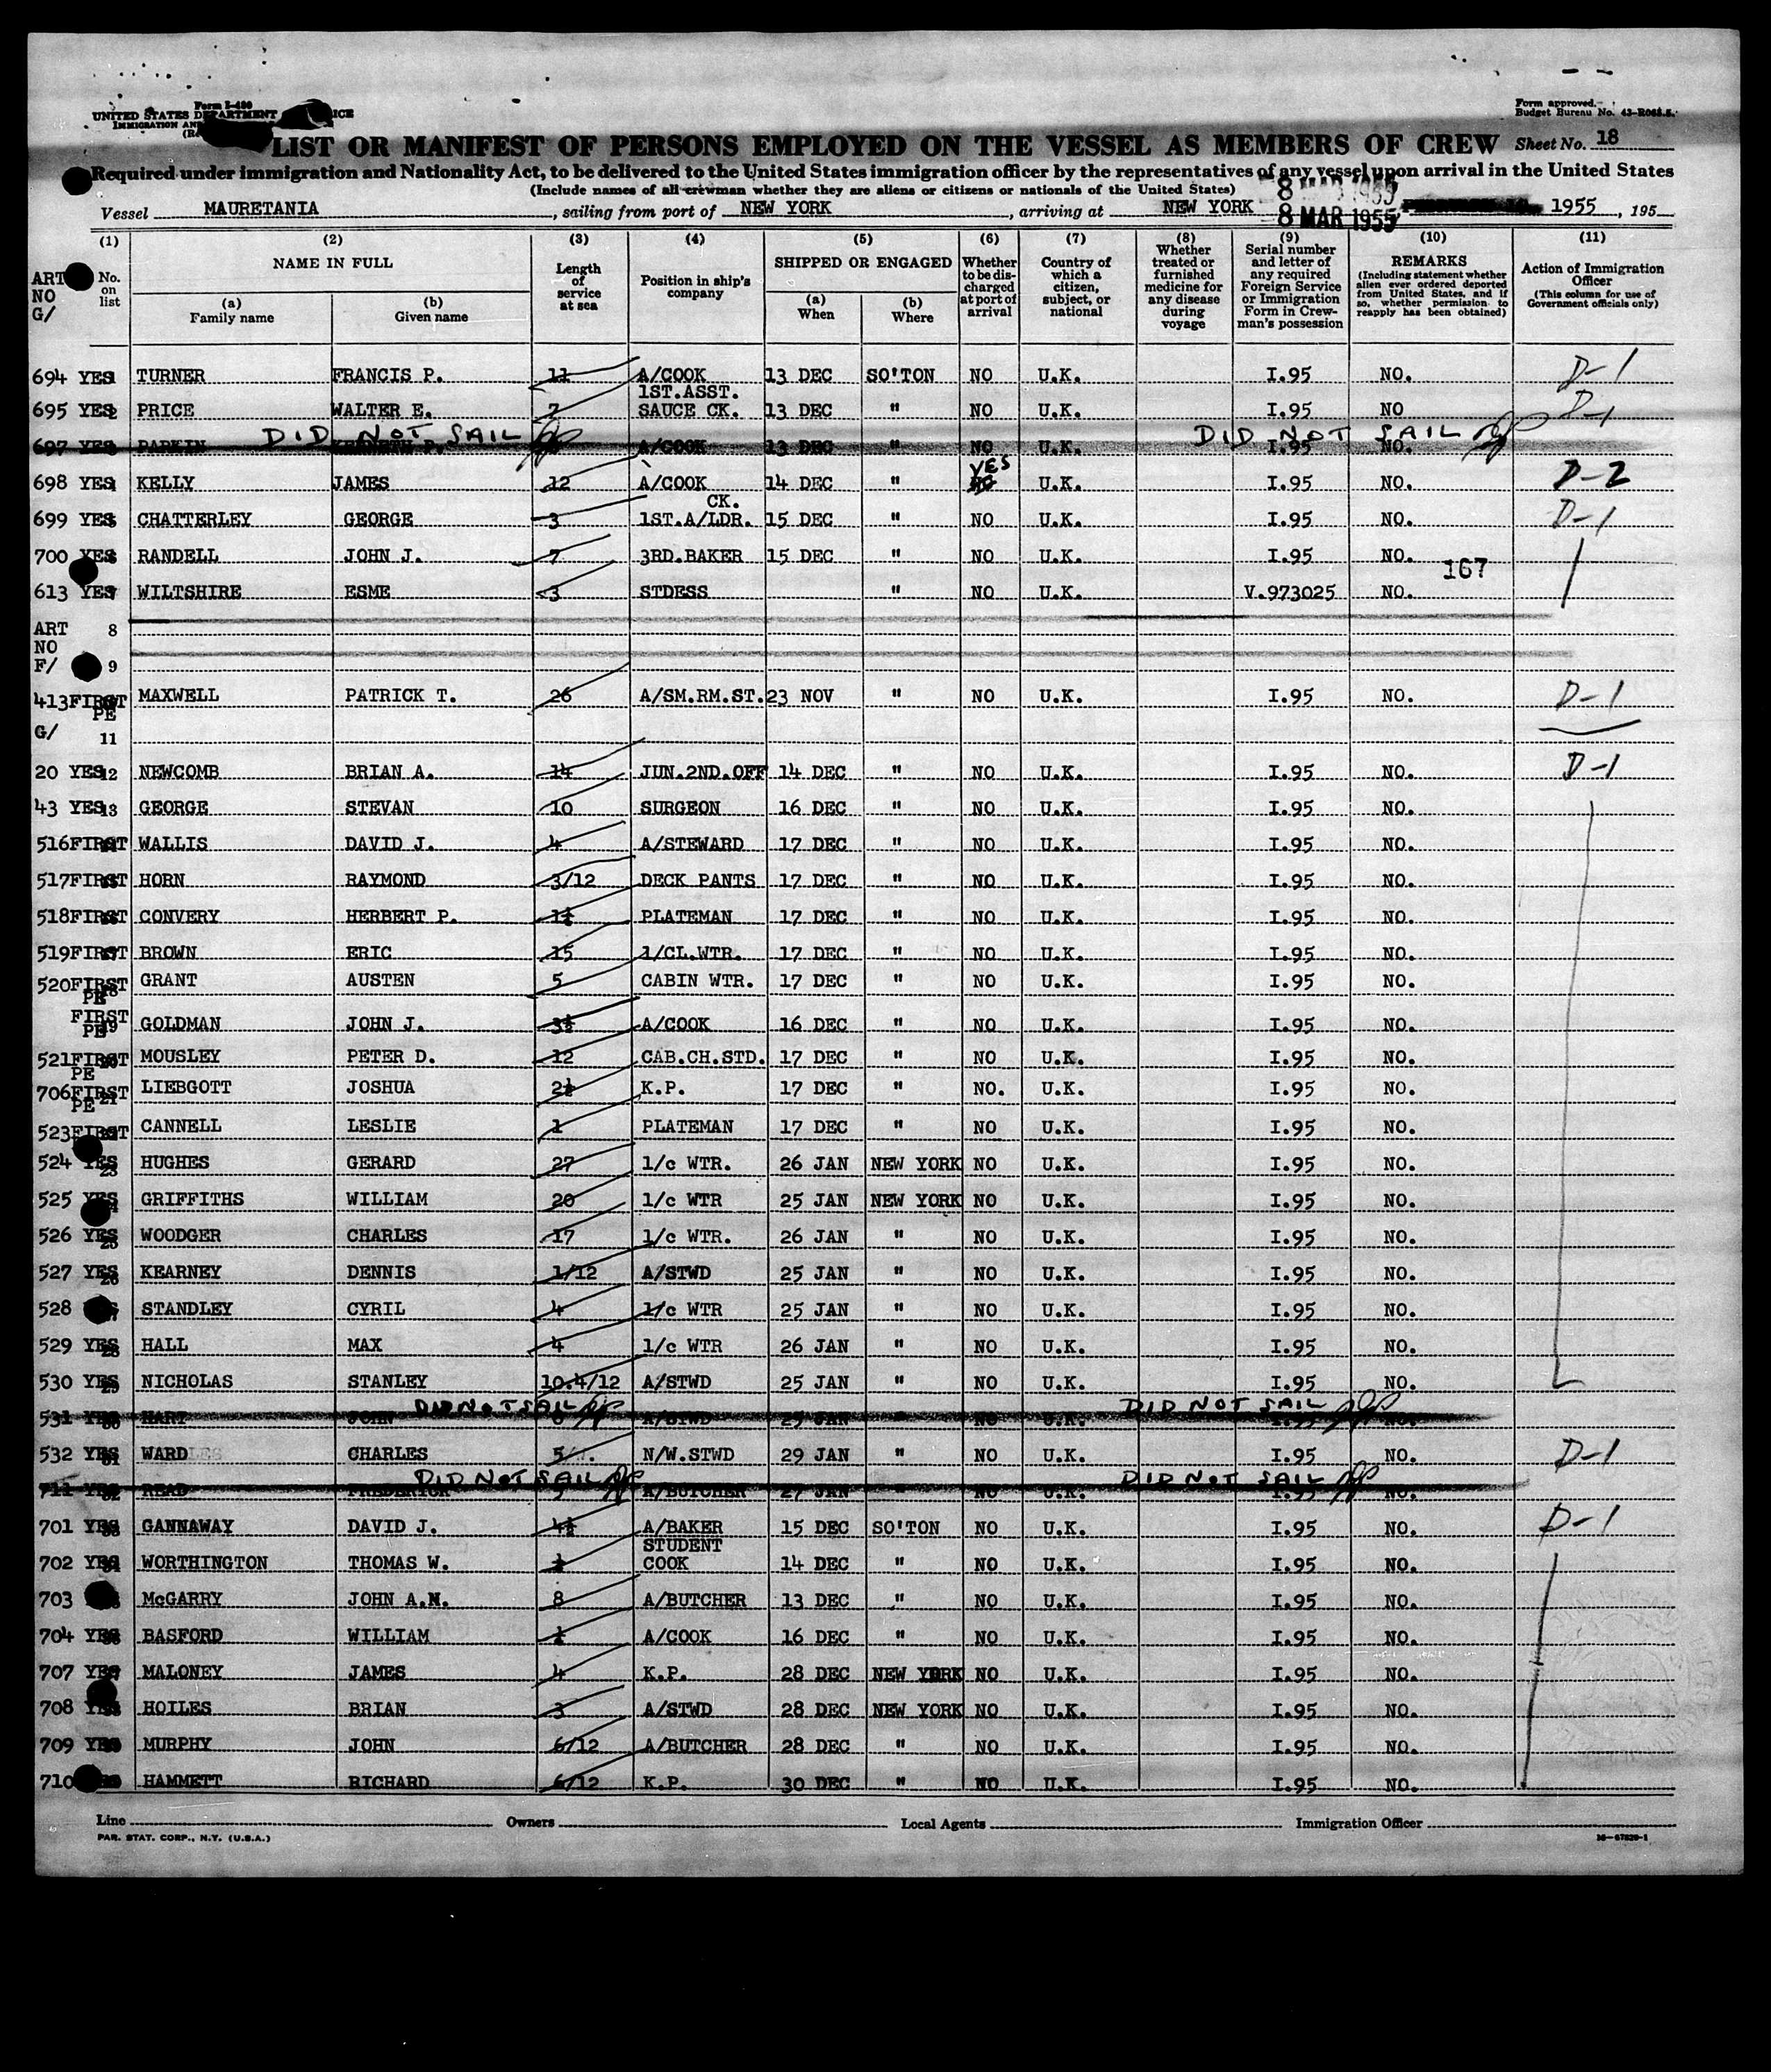 Form I-480
UNITED STATES DEPARTMENT
IMMIGRATION AND
Form approved.
Budget Bureau No. 43-R065.5.
LIST OR MANIFEST OF PERSONS EMPLOYED ON THE VESSEL AS MEMBERS OF CREW Sheet No. 18
Required under immigration and Nationality Act, to be delivered to the United States immigration officer by the representatives of any vessel upon arrival in the United States
(Include names of all crewman whether they are aliens or citizens or nationals of the United States)
8 MAR 1955
Vessel MAURETANIA, sailing from port of NEW YORK, arriving at NEW YORK 8 MAR 1955 1955, 195
(1) (2) (3) (4) (5) (6) (7) (8) (9) (10) (11)
ART NO G/ No. on list NAME IN FULL (a) Family name (b) Given name Length of service at sea Position in ship's company SHIPPED OR ENGAGED (a) When (b) Where Whether to be discharged at port of arrival Country of which a citizen, subject, or national Whether treated or furnished medicine for any disease during voyage Serial number and letter of any required Foreign Service or Immigration Form in Crewman's possession REMARKS (Including statement whether alien ever ordered deported from United States, and if so, whether permission to reapply has been obtained) Action of Immigration Officer (This column for use of Government officials only)
694 YES TURNER FRANCIS P. 11 A/COOK 13 DEC SO'TON NO U.K. I.95 NO. D-1
695 YES 2 PRICE WALTER E. 7 1ST.ASST. SAUCE CK. 13 DEC " NO U.K. I.95 NO D-1
697 YES PARKIN DID NOT SAIL A/COOK 13 DEC " NO U.K. DID NOT SAIL I.95 NO.
698 YES KELLY JAMES 12 A/COOK 14 DEC " YES U.K. I.95 NO. D-2
699 YES CHATTERLEY GEORGE 3 CK. 1ST.A/LDR. 15 DEC " NO U.K. I.95 NO. D-1
700 YES RANDELL JOHN J. 7 3RD.BAKER 15 DEC " NO U.K. I.95 NO.
167
613 YES WILTSHIRE ESME 3 STDESS " NO U.K. V.973025 NO.
ART NO 8
F/ 9
413 FIRST PE MAXWELL PATRICK T. 26 A/SM.RM.ST. 23 NOV " NO U.K. I.95 NO. D-1
G/ 11
20 YES 12 NEWCOMB BRIAN A. 14 JUN.2ND.OFF 14 DEC " NO U.K. I.95 NO. D-1
43 YES 13 GEORGE STEVAN 10 SURGEON 16 DEC " NO U.K. I.95 NO.
516 FIRST WALLIS DAVID J. 4 A/STEWARD 17 DEC " NO U.K. I.95 NO.
517 FIRST HORN RAYMOND 3/12 DECK PANTS 17 DEC " NO U.K. I.95 NO.
518 FIRST CONVERY HERBERT P. 1½ PLATEMAN 17 DEC " NO U.K. I.95 NO.
519 FIRST BROWN ERIC 15 1/CL.WTR. 17 DEC " NO U.K. I.95 NO.
520 FIRST PE 18 GRANT AUSTEN 5 CABIN WTR. 17 DEC " NO U.K. I.95 NO.
FIRST PE 19 GOLDMAN JOHN J. 3½ A/COOK 16 DEC " NO U.K. I.95 NO.
521 FIRST PE MOUSLEY PETER D. 12 CAB.CH.STD. 17 DEC " NO U.K. I.95 NO.
706 FIRST PE 21 LIEBGOTT JOSHUA 2½ K.P. 17 DEC " NO. U.K. I.95 NO.
523 FIRST CANNELL LESLIE 1 PLATEMAN 17 DEC " NO U.K. I.95 NO.
524 YES 23 HUGHES GERARD 27 1/c WTR. 26 JAN NEW YORK NO U.K. I.95 NO.
525 YES GRIFFITHS WILLIAM 20 1/c WTR 25 JAN NEW YORK NO U.K. I.95 NO.
526 YES 25 WOODGER CHARLES 17 1/c WTR. 26 JAN " NO U.K. I.95 NO.
527 YES 26 KEARNEY DENNIS 1/12 A/STWD 25 JAN " NO U.K. I.95 NO.
528 STANDLEY CYRIL 4 1/c WTR 25 JAN " NO U.K. I.95 NO.
529 YES 28 HALL MAX 4 1/c WTR 26 JAN " NO U.K. I.95 NO.
530 YES 29 NICHOLAS STANLEY 10.4/12 A/STWD 25 JAN " NO U.K. I.95 NO.
531 YES 30 HART JOHN DID NOT SAIL A/STWD 25 JAN " NO U.K. DID NOT SAIL NO.
532 YES 31 WARD CHARLES 5 N/W.STWD 29 JAN " NO U.K. I.95 NO. D-1
711 YES 32 READ FREDERICK DID NOT SAIL A/BUTCHER 27 JAN " NO U.K. DID NOT SAIL I.95 NO.
701 YES GANNAWAY DAVID J. 4½ A/BAKER 15 DEC SO'TON NO U.K. I.95 NO. D-1
702 YES WORTHINGTON THOMAS W. ½ STUDENT COOK 14 DEC " NO U.K. I.95 NO.
703 McGARRY JOHN A.N. 8 A/BUTCHER 13 DEC " NO U.K. I.95 NO.
704 YES BASFORD WILLIAM ½ A/COOK 16 DEC " NO U.K. I.95 NO.
707 YES MALONEY JAMES 4 K.P. 28 DEC NEW YORK NO U.K. I.95 NO.
708 HOILES BRIAN 3 A/STWD 28 DEC NEW YORK NO U.K. I.95 NO.
709 YES MURPHY JOHN 6/12 A/BUTCHER 28 DEC " NO U.K. I.95 NO.
710 HAMMETT RICHARD 6/12 K.P. 30 DEC " NO U.K. I.95 NO.
Line Owners Local Agents Immigration Officer
PAR. STAT. CORP., N.Y. (U.S.A.)
16-67820-1